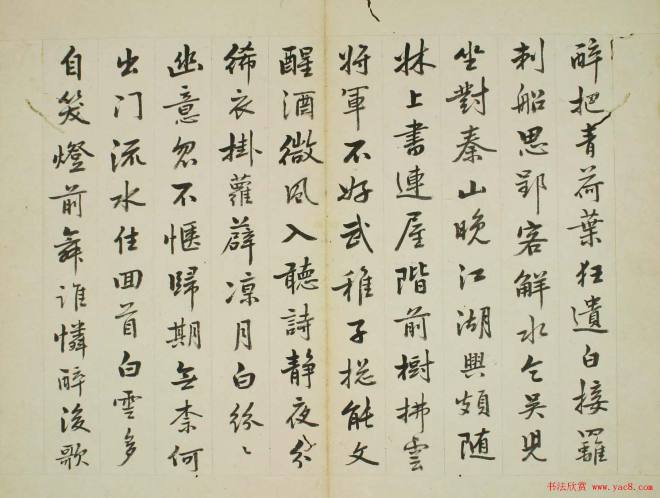 醉把青荷葉狂遺白接䍦
刺船思郢客解水乞吴兒
坐對秦山晚江湖興頗随
牀上書連屋階前樹拂雲
将軍不好武稚子揔能文
醒酒微風入聽詩静夜分
絺衣掛蘿薜凉月白紛〻
幽意忽不愜歸期無柰何
出门流水住回首白雲多
自笑燈前舞誰憐醉後歌
书法欣赏 www.yac8.com